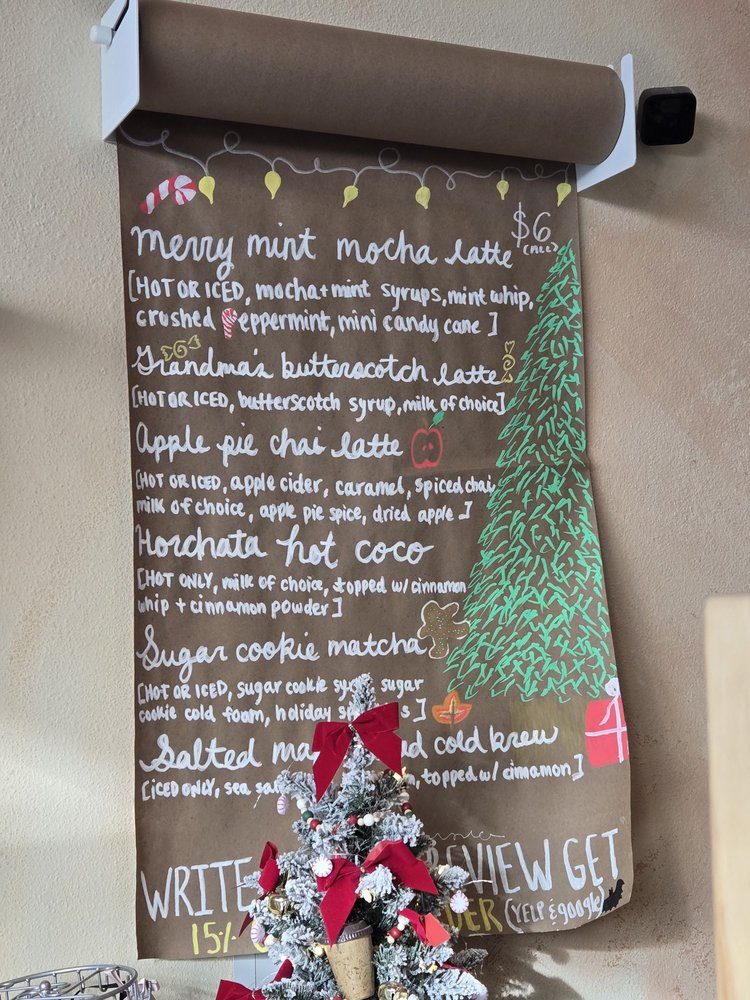 $6
(ALL)
Merry mint mocha latte
[HOT OR ICED, mocha + mint syrups, mint whip,
crushed peppermint, mini candy cane]
Grandma's butterscotch latte
[HOT OR ICED, butterscotch syrup, milk of choice]
Apple pie chai latte
[HOT OR ICED, apple cider, caramel, spiced chai,
milk of choice, apple pie spice, dried apple]
Horchata hot coco
[HOT ONLY, milk of choice, topped w/ cinnamon
whip + cinnamon powder]
Sugar cookie matcha
[HOT OR ICED, sugar cookie sugar
cookie cold foam, holiday]
Salted cold brew
[ICED ONLY, sea topped w/ cinnamon]
WRITE REVIEW GET
15% (YELP & google)